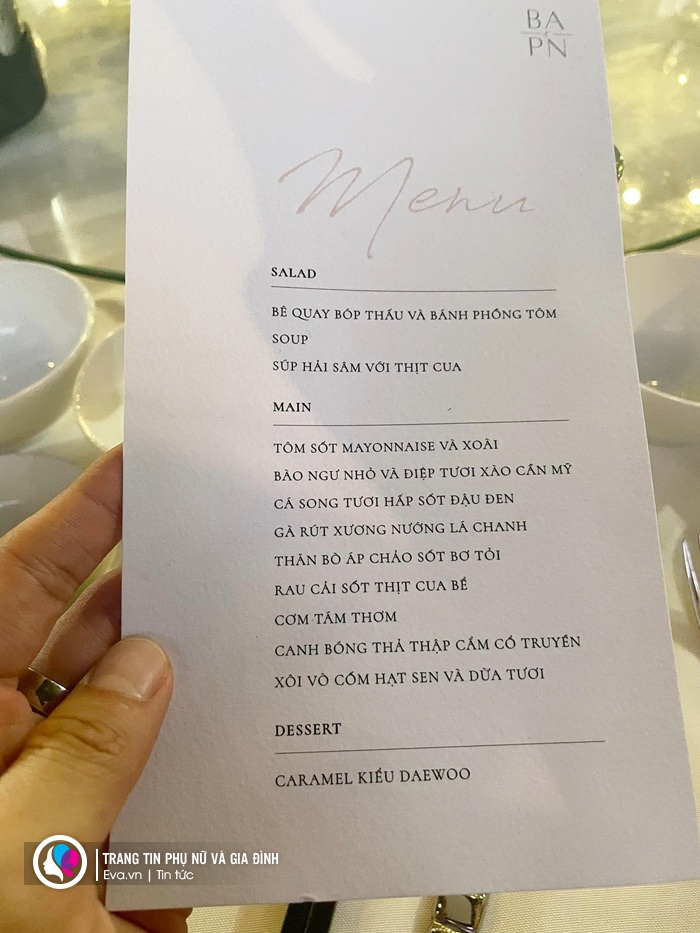 BA
PN
Menu
SALAD
BÊ QUAY BÓP THẤU VÀ BÁNH PHỒNG TÔM
SOUP
SÚP HẢI SÂM VỚI THỊT CUA
MAIN
TÔM SỐT MAYONNAISE VÀ XOÀI
BÀO NGƯ NHỎ VÀ ĐIỆP TƯƠI XÀO CẦN MỸ
CÁ SONG TƯƠI HẤP SỐT ĐẬU ĐEN
GÀ RÚT XƯƠNG NƯỚNG LÁ CHANH
THĂN BÒ ÁP CHẢO SỐT BƠ TỎI
RAU CẢI SỐT THỊT CUA BỂ
CƠM TÁM THƠM
CANH BÓNG THẢ THẬP CẨM CỔ TRUYỀN
XÔI VÒ CỐM HẠT SEN VÀ DỪA TƯƠI
DESSERT
CARAMEL KIỂU DAEWOO
TRANG TIN PHỤ NỮ VÀ GIA ĐÌNH
Eva.vn | Tin tức